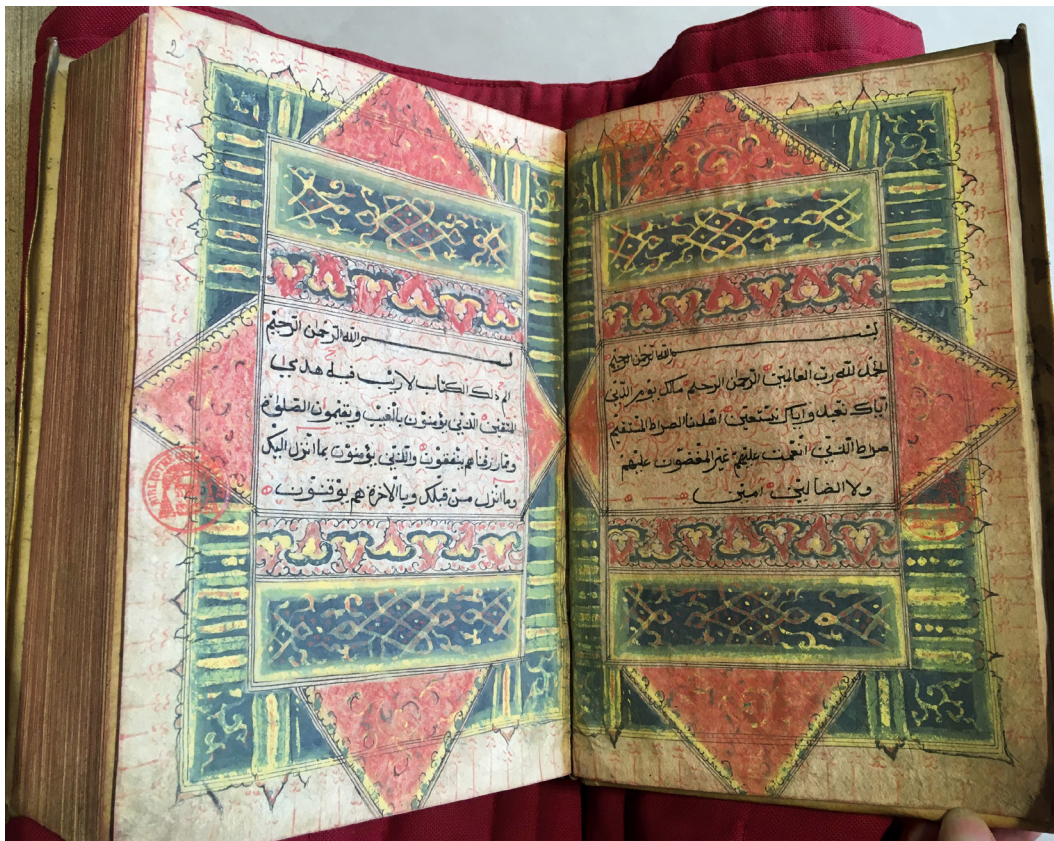 بسم الله الرحمن الرحيم
الحمد لله رب العالمين الرحمن الرحيم مالك يوم الدين
اياك نعبد واياك نستعين اهدنا الصراط المستقيم
صراط الذين انعمت عليهم غير المغضوب عليهم
ولا الضالين امين
2
بسم الله الرحمن الرحيم
الم ذلك الكتاب لاريب فيه هدى
للمتقين الذين يؤمنون بالغيب ويقيمون الصلوة
ومما رزقناهم ينفقون والذين يؤمنون بما انزل اليك
وما انزل من قبلك وبالاخرة هم يوقنون